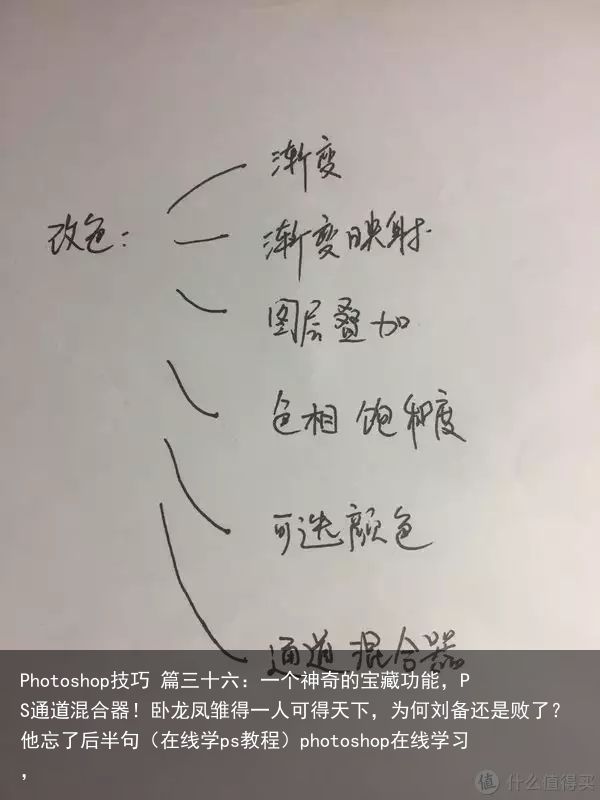 渐变
改色：
渐变映射
图层叠加
色相 饱和度
可选颜色
通道混合器
Photoshop技巧 篇三十六：一个神奇的宝藏功能，P
S通道混合器！卧龙凤雏得一人可得天下，为何刘备还是败了？
他忘了后半句（在线学ps教程）photoshop在线学习
，
值 什么值得买